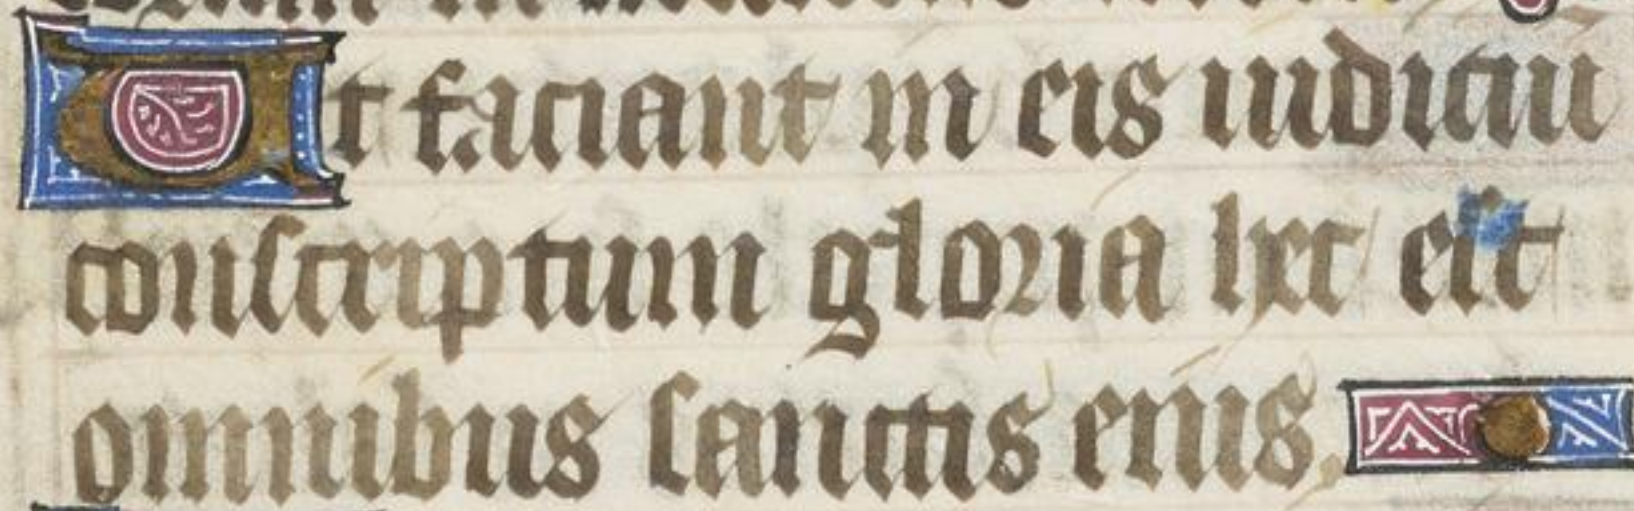 Ut faciant in eis iudiciu
conscriptum gloria hec est
omnibus sanctis eius.